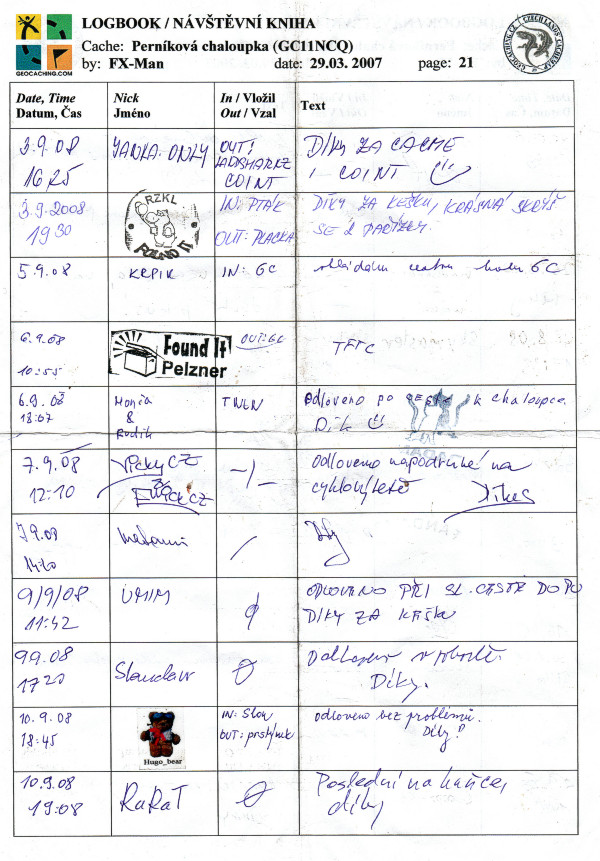 LOGBOOK / NÁVŠTĚVNÍ KNIHA
Cache: Perníková chaloupka (GC11NCQ)
by: FX-Man date: 29.03. 2007 page: 21
GEOCACHING.COM
Date, Time Nick In / Vložil Text
Datum, Čas Jméno Out / Vzal
3.9.08 OUT! DÍKY ZA CACHE
1625 COINT 1 COINT
3.9.2008 RZKL IN: PTÁK DÍKY ZA KEŠKU, KRÁSNÁ SKRÝŠ
1930 FOUND IT OUT: PLACKA SE 2 PAŘÍZKY.
5.9.08 KRPIK IN: GC GC
6.9.08 Found It! OUT: GC TFTC
10:55 Pelzner
6.9.08 Monča TNLN Odloveno po cestě k chaloupce
18:07 & Dík
Rudík
7.9.08 CZ -/- Odloveno napodruhé na
12:10 CZ cyklovýletě Díkes
7.9.08 /
14:20
9/9/08 ODLOVENO PŘI SL. CESTĚ DO PU
11:42 DÍKY ZA KEŠKU
9.9.08
1720 Díky.
10.9.08 IN: Slon odloveno bez problémů.
18:45 Hugo_bear OUT: Díky!
10.9.08 RaRaT Poslední na kešce,
19:08 díky